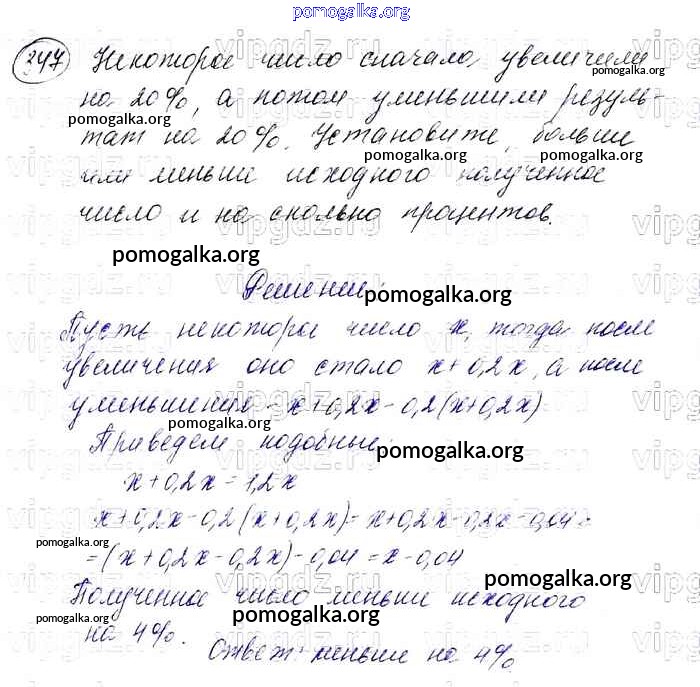 pomogalka.org
347 Некоторое число сначала увеличили
на 20%, а потом уменьшили резуль-
pomogalka.org
тат на 20%. Установите, больше
pomogalka.org
или меньше исходного полученное
число и на сколько процентов.
pomogalka.org
Решение:
pomogalka.org
Пусть некоторое число x, тогда после
увеличения оно стало x+0,2x, а после
уменьшения - x+0,2x-0,2(x+0,2x)
pomogalka.org
Приведем подобные:
pomogalka.org
x+0,2x=1,2x
x+0,2x-0,2(x+0,2x)=x+0,2x-0,2x-0,04=
pomogalka.org
=(x+0,2x-0,2x)-0,04=x-0,04
pomogalka.org
Полученное число меньше исходного
pomogalka.org
pomogalka.org
на 4%.
Ответ: меньше на 4%
pomogalka.org